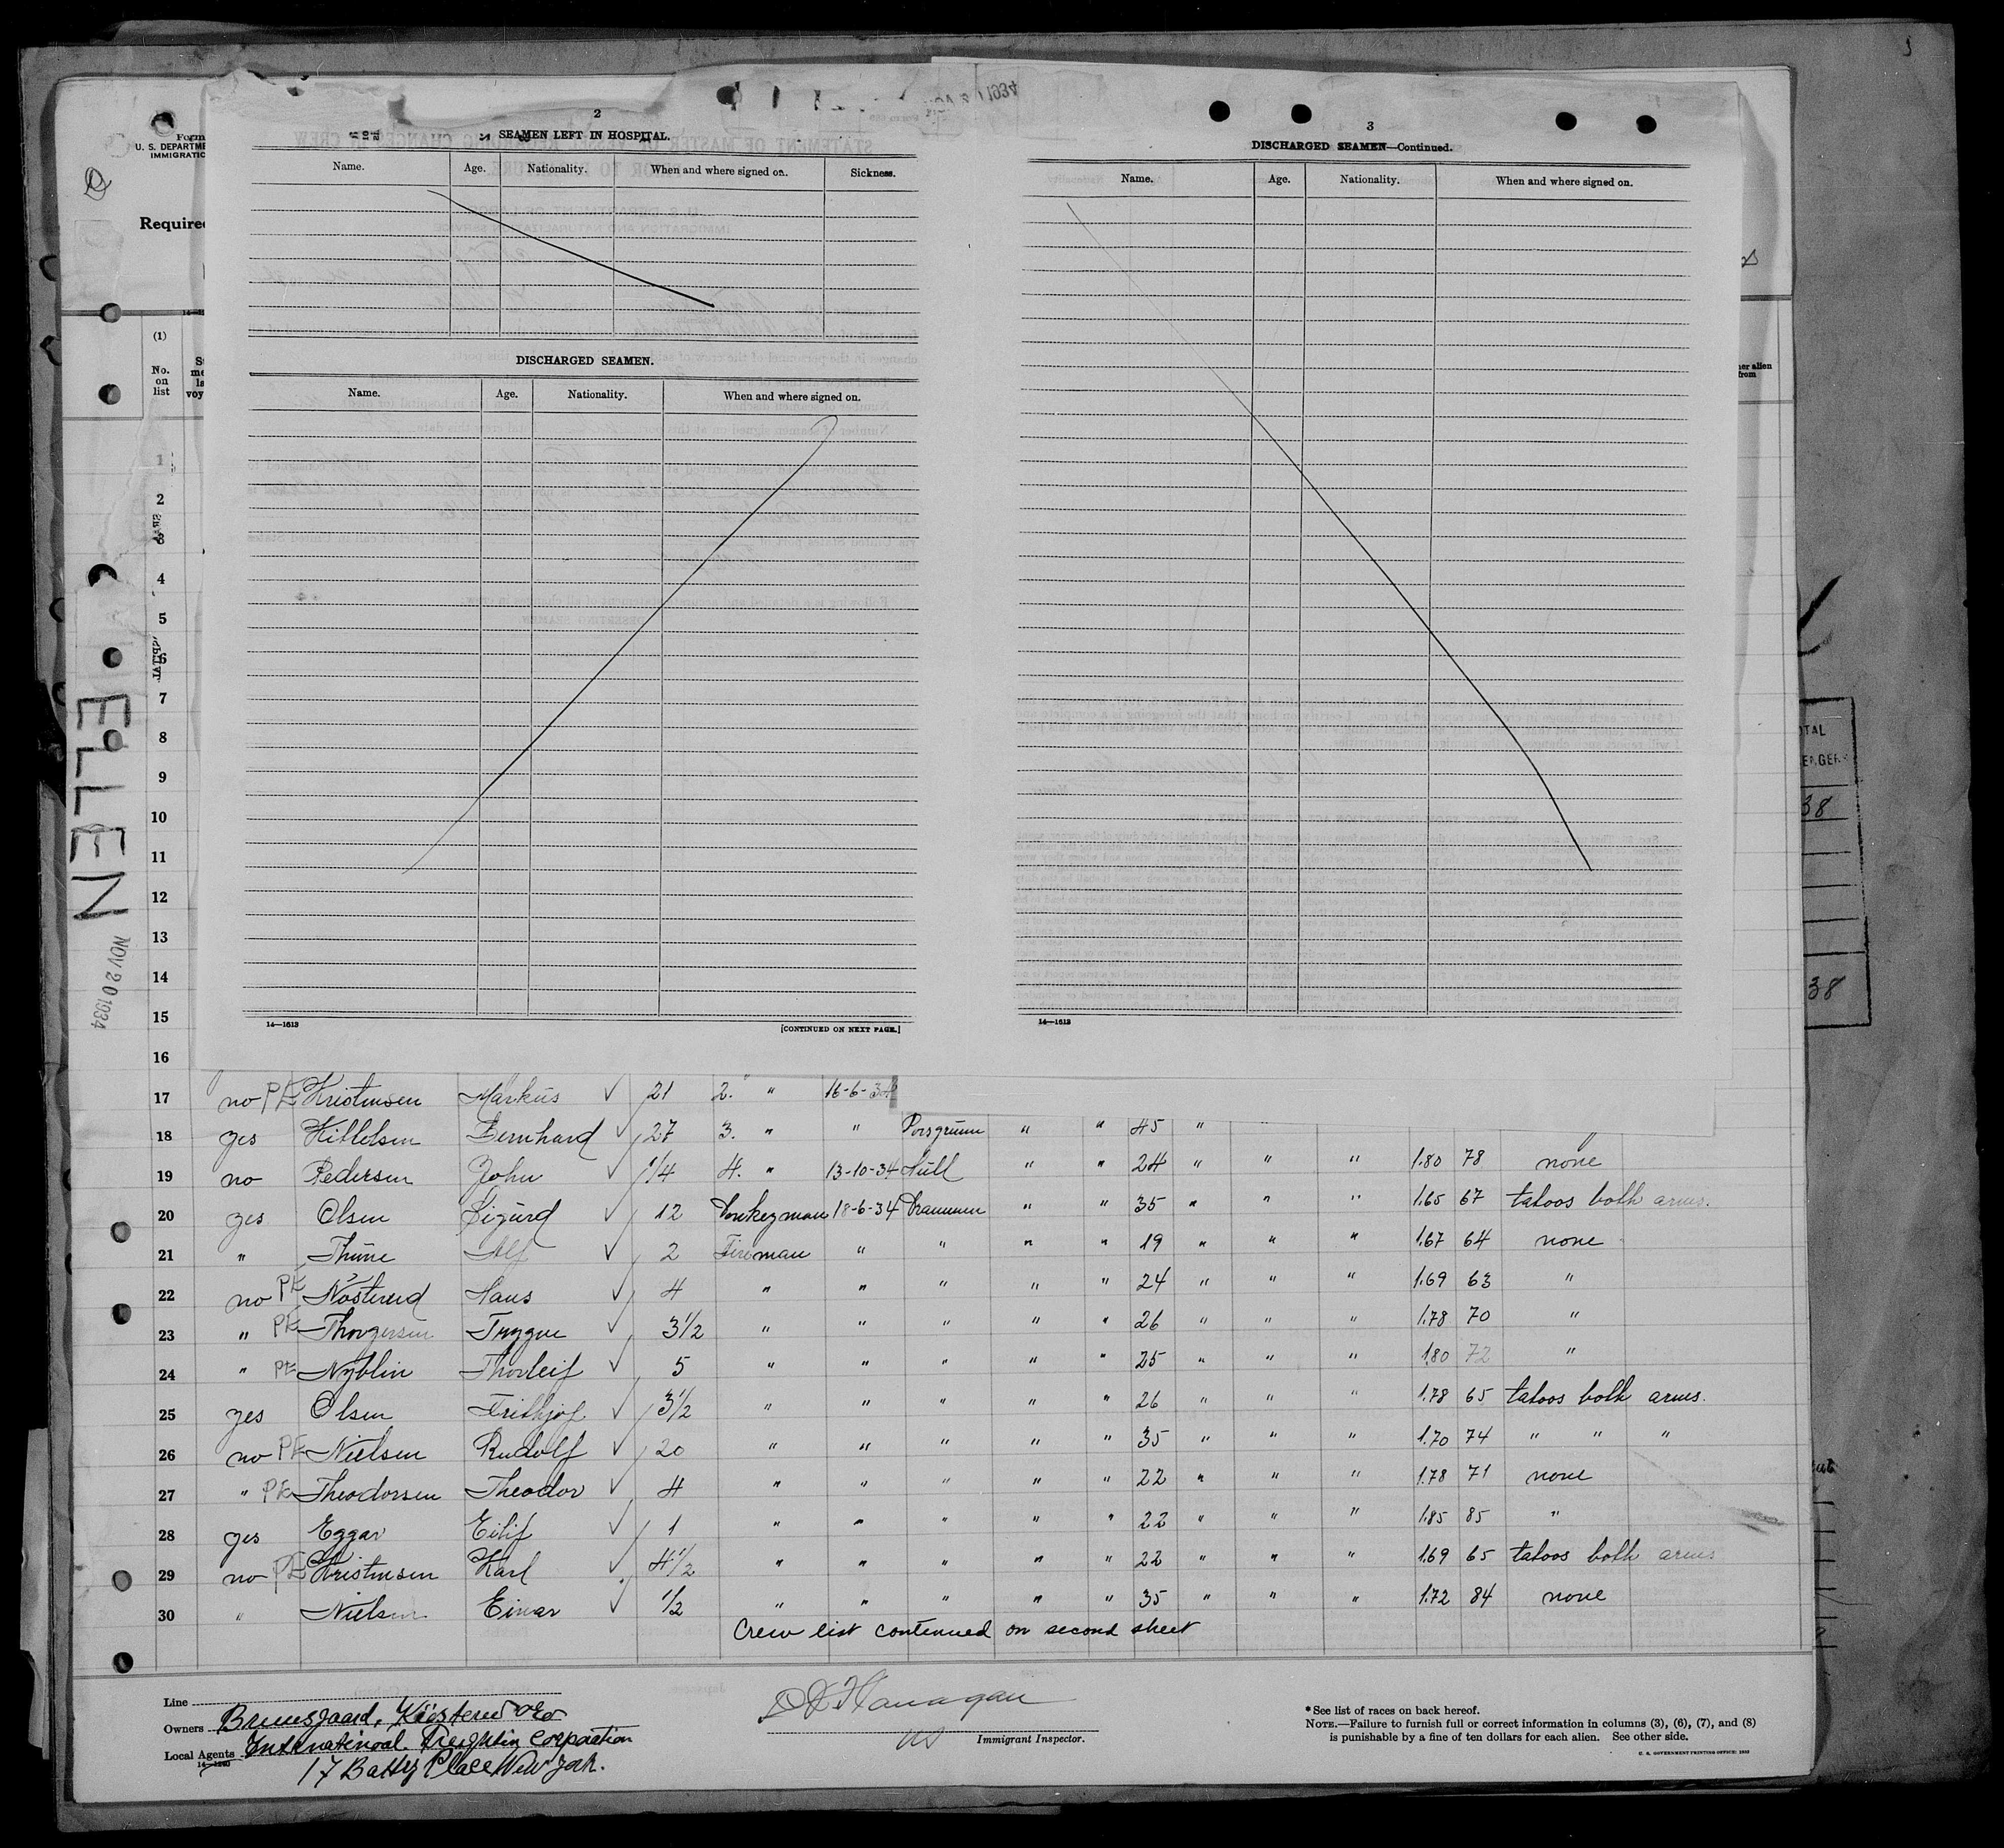 2
SEAMEN LEFT IN HOSPITAL.
Name. Age. Nationality. When and where signed on. Sickness.
DISCHARGED SEAMEN.
Name. Age. Nationality. When and where signed on.
14—1613 [CONTINUED ON NEXT PAGE.]
1934
3
DISCHARGED SEAMEN—Continued.
Name. Age. Nationality. When and where signed on.
14—1613
Form
U. S. DEPARTME
IMMIGRATIO
Required
(1)
No. on list
ELLEN
NOV 20 1934
1
2
3
4
5
6
7
8
9
10
11
12
13
14
15
16
17 no Pt Kristensen Markus ✓ 21 2. " 16-6-34
18 yes Bernhard ✓ 27 3. " " Porsgrunn " " 45 "
19 no Pedersen John ✓ 1/4 4. " 13-10-34 Hull " " 24 " " " 1.80 78 none
20 yes Olsen Sigurd ✓ 12 Donkeyman 18-6-34 Drammen " " 35 " " " 1.65 67 tatoos both arms.
21 " Thune Alf ✓ 2 Fireman " " " " 19 " " " 1.67 64 none
22 no Pt Hans ✓ 4 " " " " " 24 " " " 1.69 63 "
23 " Pt Thorgersen Trygve ✓ 3 1/2 " " " " " 26 " " " 1.78 70 "
24 " Pt Nyblin Thorleif ✓ 5 " " " " " 25 " " " 1.80 72 "
25 yes Olsen Frithjof ✓ 3 1/2 " " " " " 26 " " " 1.78 65 tatoos both arms.
26 no Pt Nielsen Rudolf ✓ 20 " " " " " 35 " " " 1.70 74 " " "
27 " Pt Theodorsen Theodor ✓ 4 " " " " " 22 " " " 1.78 71 none
28 yes Eggar Eilif ✓ 1 " " " " " 22 " " " 1.85 85 "
29 no Pt Kristensen Karl ✓ 4 1/2 " " " " " 22 " " " 1.69 65 tatoos both arms
30 " Nielsen Einar ✓ 1/2 " " " " " 35 " " " 1.72 84 none
Crew list continued on second sheet
Line
Owners Bruusgaard, Kiøsterud
Local Agents Internatinoal Freighting Corporation
17 Battery Place New York.
Immigrant Inspector.
* See list of races on back hereof.
NOTE.—Failure to furnish full or correct information in columns (3), (6), (7), and (8)
is punishable by a fine of ten dollars for each alien. See other side.
U. S. GOVERNMENT PRINTING OFFICE: 1933
38
38